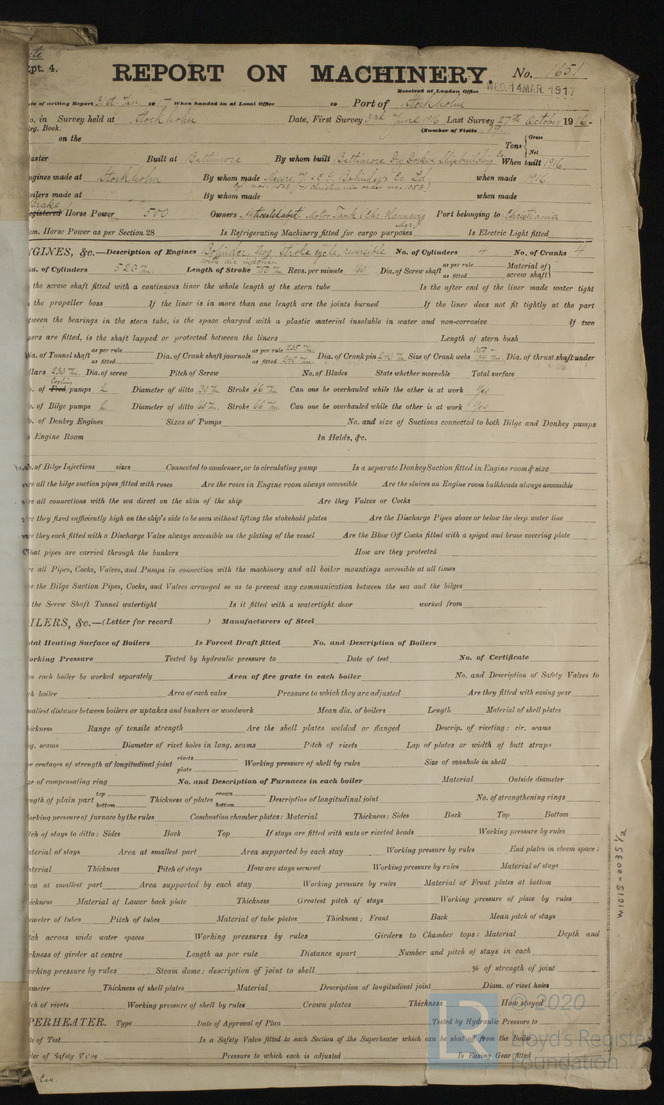 pt. 4.
REPORT ON MACHINERY. No. 1651
Received at London Office WED. 14 MAR 1917
ate of writing Report 31st Jan 1917 When handed in at Local Office 19 Port of Stockholm
o. in Survey held at Stockholm Date, First Survey 3rd June 1916 Last Survey 27th October 1916
eg. Book. (Number of Visits
on the Tons Gross Net
aster Built at Baltimore By whom built Baltimore Dry Dock & Shipbuilding Co When built 1916
ngines made at Stockholm By whom made when made 1916
oilers made at By whom made when made
Brake
egistered Horse Power 500 Owners Port belonging to Christiania
om. Horse Power as per Section 28 Is Refrigerating Machinery fitted for cargo purposes Is Electric Light fitted
NGINES, &c.—Description of Engines No. of Cylinders 4 No. of Cranks 4
ia. of Cylinders Length of Stroke Revs. per minute Dia. of Screw shaft as per rule as fitted Material of screw shaft
the screw shaft fitted with a continuous liner the whole length of the stern tube Is the after end of the liner made water tight
the propeller boss If the liner is in more than one length are the joints burned If the liner does not fit tightly at the part
tween the bearings in the stern tube, is the space charged with a plastic material insoluble in water and non-corrosive If two
ers are fitted, is the shaft lapped or protected between the liners Length of stern bush
ia. of Tunnel shaft as per rule as fitted Dia. of Crank shaft journals as per rule as fitted Dia. of Crank pin Size of Crank webs Dia. of thrust shaft under
llars Dia. of screw Pitch of Screw No. of Blades State whether moveable Total surface
o. of Feed Cooling pumps 2 Diameter of ditto Stroke Can one be overhauled while the other is at work Yes
o. of Bilge pumps 2 Diameter of ditto Stroke Can one be overhauled while the other is at work Yes
o. of Donkey Engines Sizes of Pumps No. and size of Suctions connected to both Bilge and Donkey pumps
Engine Room In Holds, &c.
o. of Bilge Injections sizes Connected to condenser, or to circulating pump Is a separate Donkey Suction fitted in Engine room & size
re all the bilge suction pipes fitted with roses Are the roses in Engine room always accessible Are the sluices on Engine room bulkheads always accessible
re all connections with the sea direct on the skin of the ship Are they Valves or Cocks
re they fixed sufficiently high on the ship's side to be seen without lifting the stokehold plates Are the Discharge Pipes above or below the deep water line
re they each fitted with a Discharge Valve always accessible on the plating of the vessel Are the Blow Off Cocks fitted with a spigot and brass covering plate
hat pipes are carried through the bunkers How are they protected
re all Pipes, Cocks, Valves, and Pumps in connection with the machinery and all boiler mountings accessible at all times
re the Bilge Suction Pipes, Cocks, and Valves arranged so as to prevent any communication between the sea and the bilges
the Screw Shaft Tunnel watertight Is it fitted with a watertight door worked from
OILERS, &c.—(Letter for record ) Manufacturers of Steel
otal Heating Surface of Boilers Is Forced Draft fitted No. and Description of Boilers
orking Pressure Tested by hydraulic pressure to Date of test No. of Certificate
an each boiler be worked separately Area of fire grate in each boiler No. and Description of Safety Valves to
ch boiler Area of each valve Pressure to which they are adjusted Are they fitted with easing gear
mallest distance between boilers or uptakes and bunkers or woodwork Mean dia. of boilers Length Material of shell plates
hickness Range of tensile strength Are the shell plates welded or flanged Descrip. of riveting: cir. seams
ng. seams Diameter of rivet holes in long. seams Pitch of rivets Lap of plates or width of butt straps
er centages of strength of longitudinal joint rivets plate Working pressure of shell by rules Size of manhole in shell
ze of compensating ring No. and Description of Furnaces in each boiler Material Outside diameter
ength of plain part top bottom Thickness of plates crown bottom Description of longitudinal joint No. of strengthening rings
orking pressure of furnace by the rules Combustion chamber plates: Material Thickness: Sides Back Top Bottom
tch of stays to ditto: Sides Back Top If stays are fitted with nuts or riveted heads Working pressure by rules
aterial of stays Area at smallest part Area supported by each stay Working pressure by rules End plates in steam space:
aterial Thickness Pitch of stays How are stays secured Working pressure by rules Material of stays
rea at smallest part Area supported by each stay Working pressure by rules Material of Front plates at bottom
hickness Material of Lower back plate Thickness Greatest pitch of stays Working pressure of plate by rules
iameter of tubes Pitch of tubes Material of tube plates Thickness: Front Back Mean pitch of stays
tch across wide water spaces Working pressures by rules Girders to Chamber tops: Material Depth and
ickness of girder at centre Length as per rule Distance apart Number and pitch of stays in each
orking pressure by rules Steam dome: description of joint to shell % of strength of joint
ameter Thickness of shell plates Material Description of longitudinal joint Diam. of rivet holes
tch of rivets Working pressure of shell by rules Crown plates Thickness How stayed
PERHEATER. Type Date of Approval of Plan Tested by Hydraulic Pressure to
ate of Test Is a Safety Valve fitted to each Section of the Superheater which can be shut off from the Boiler
ter of Safety Valve Pressure to which each is adjusted Is Easing Gear fitted
W1015-0035 1/2
LR
© 2020
Lloyd's Register
Foundation